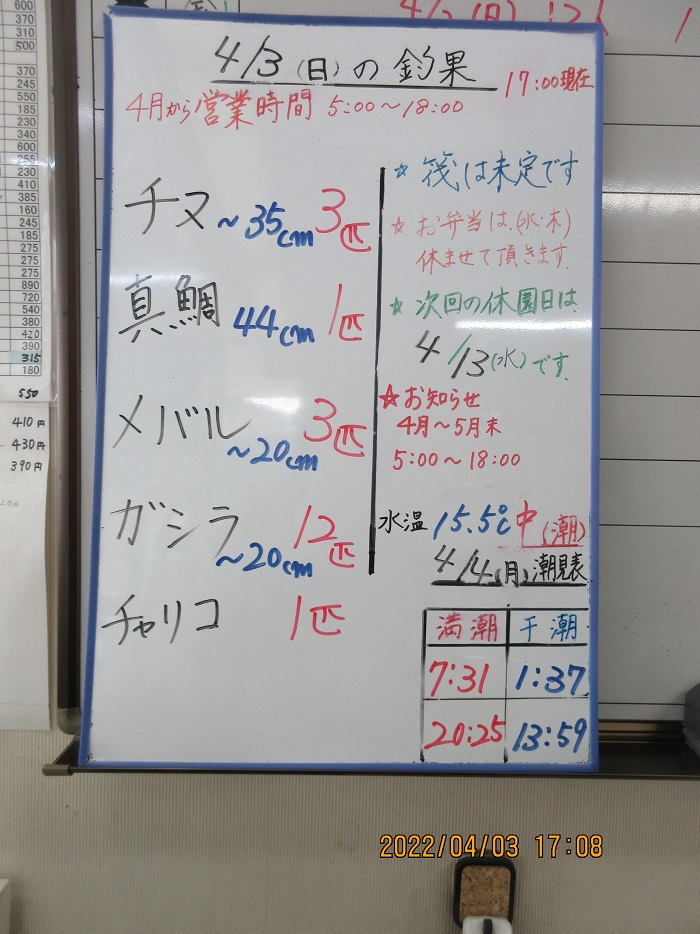 600
370
310
500
370
245
550
185
230
340
600
545
230
410
385
160
245
185
275
245
275
275
890
720
540
380
420
390
315
180
550
410円
430円
390円
4/3(日)の釣果
17:00現在
4月から営業時間 5:00～18:00
チヌ ～35cm 3匹
真鯛 44cm 1匹
メバル ～20cm 3匹
ガシラ ～20cm 12匹
チャリコ 1匹
☆ 筏は未定です
☆ お弁当は、(水・木)
休ませて頂きます。
☆ 次回の休園日は
4/13(水)です。
☆お知らせ
4月～5月末
5:00～18:00
水温 15.5℃ 中(潮)
4/4(月)潮見表
満潮 干潮
7:31 1:37
20:25 13:59
2022/04/03 17:08